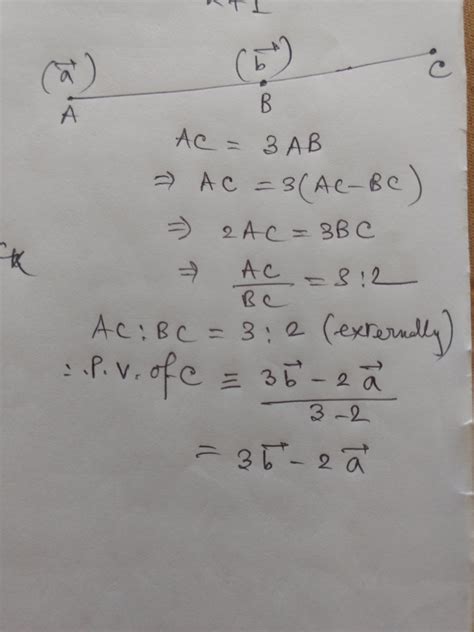 (a⃗) (b⃗)
A B C
AC = 3AB
⇒ AC = 3(AC-BC)
⇒ 2AC = 3BC
⇒ AC/BC = 3:2
AC:BC = 3:2 (externally)
∴ P.V. of C ≡ (3b⃗ - 2a⃗)/(3-2)
= 3b⃗ - 2a⃗